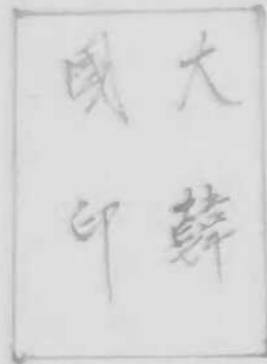 大韓
國印